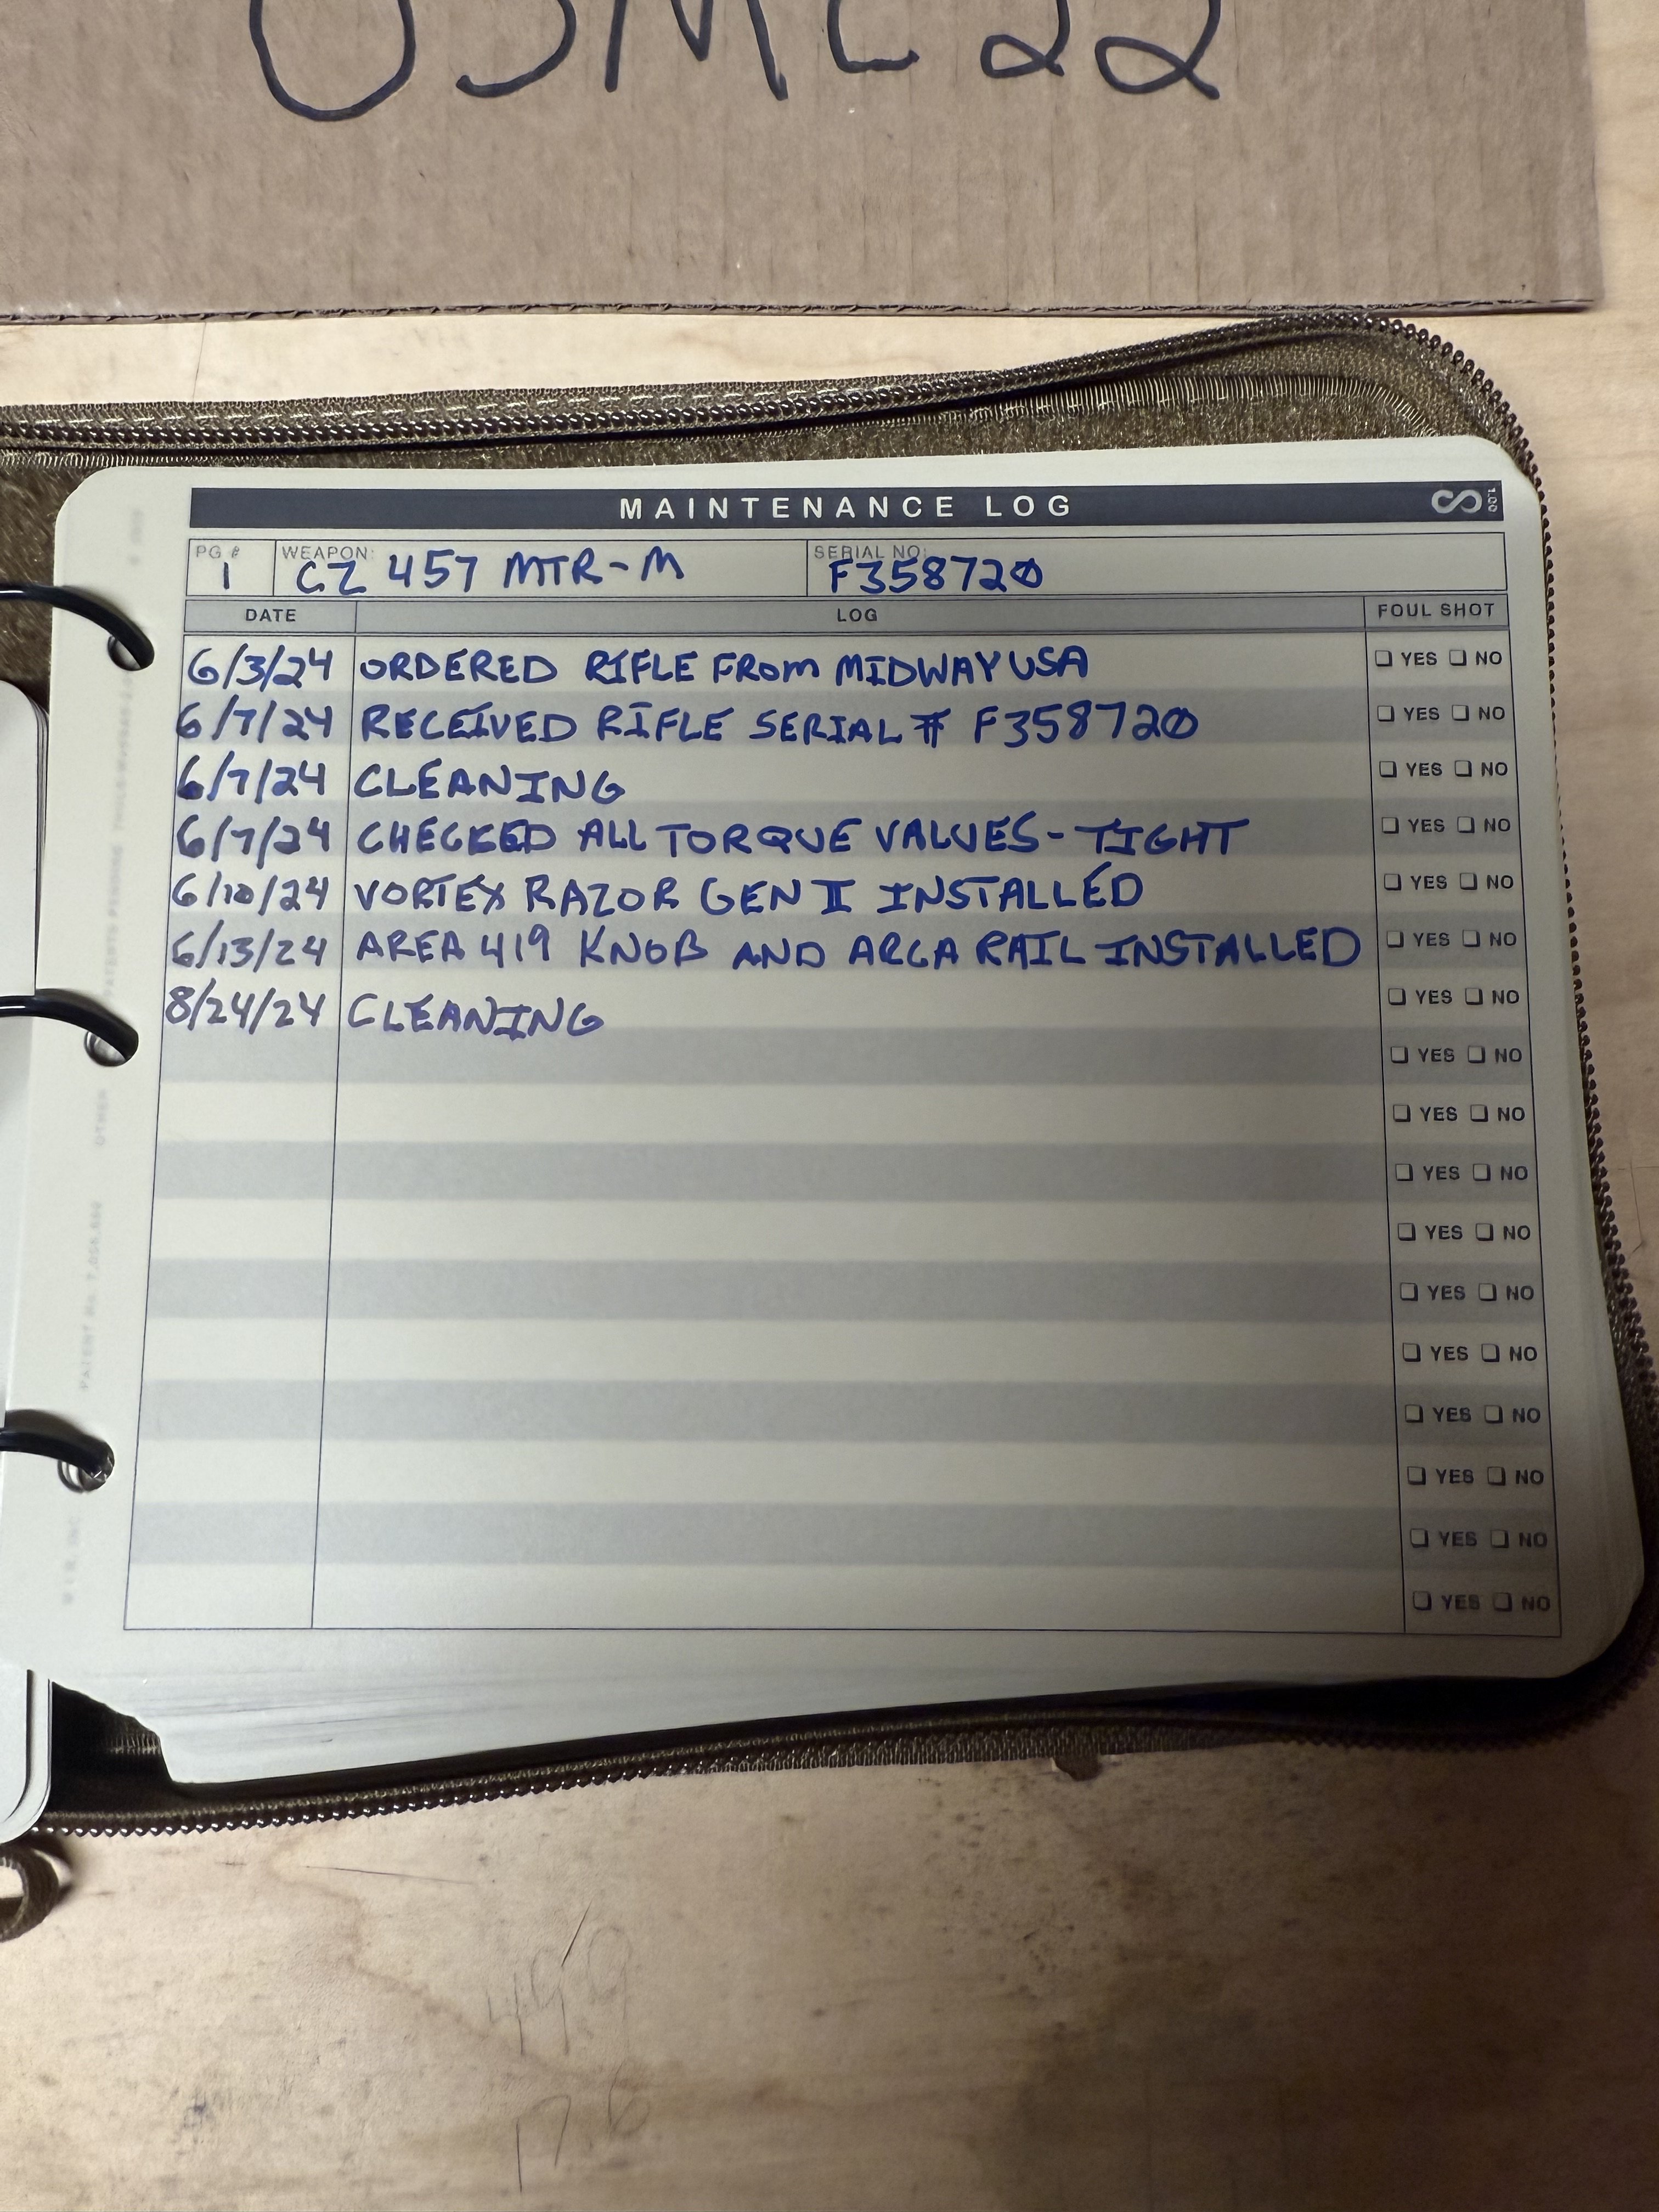 USMC22
MAINTENANCE LOG
1.00
PG #
1
WEAPON:
CZ 457 MTR-M
SERIAL NO:
F358720
DATE LOG FOUL SHOT
6/3/24 ORDERED RIFLE FROM MIDWAYUSA ❏ YES ❏ NO
6/7/24 RECEIVED RIFLE SERIAL # F358720 ❏ YES ❏ NO
6/7/24 CLEANING ❏ YES ❏ NO
6/7/24 CHECKED ALL TORQUE VALUES - TIGHT ❏ YES ❏ NO
6/10/24 VORTEX RAZOR GEN II INSTALLED ❏ YES ❏ NO
6/13/24 AREA 419 KNOB AND ARCA RAIL INSTALLED ❏ YES ❏ NO
8/24/24 CLEANING ❏ YES ❏ NO
❏ YES ❏ NO
❏ YES ❏ NO
❏ YES ❏ NO
❏ YES ❏ NO
❏ YES ❏ NO
❏ YES ❏ NO
❏ YES ❏ NO
❏ YES ❏ NO
❏ YES ❏ NO
❏ YES ❏ NO